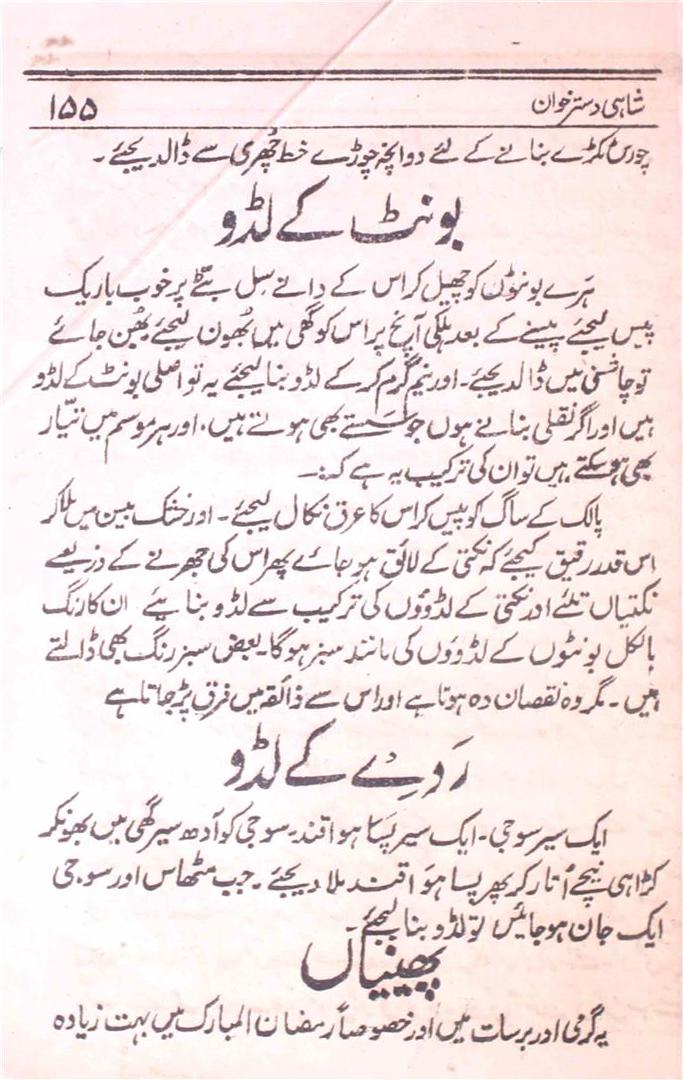 شاہی دسترخوان ۱۵۵
چورس ٹکڑے بنانے کے لئے دو اِنچہ چوڑے خط چُھری سے ڈالدیجئے۔
بونٹ کے لڈو
ہَرے بونٹوں کو چھیل کر اس کے دانے سِل بٹّے پر خوب باریک
پیس لیجئے پیسنے کے بعد ہلکی آنچ پر اس کو گھی میں بُھون لیجئے بُھن جائے
تو چاشنی میں ڈالدیجئے۔ اور نیم گرم کرکے لڈو بنا لیجئے یہ تو اصلی بونٹ کے لڈو
ہیں اور اگر نقلی بنانے ہوں جو سَستے بھی ہوتے ہیں، اور ہر موسم میں تیّار
بھی ہو سکتے ہیں تو ان کی ترکیب یہ ہے کہ:۔
پالک کے ساگ کو پیس کر اس کا عرق نکال لیجئے۔ اور خشک بیسن میں ملا کر
اس قدر رقیق کیجئے کہ نکتی کے لائق ہو جائے پھر اس کی جھرنے کے ذریعے
نکتیاں تلئے اور نکتی کے لڈوؤں کی ترکیب سے لڈو بنایئے ان کا رنگ
بالکل بونٹوں کے لڈوؤں کی مانند سبز ہوگا۔ بعض سبز رنگ بھی ڈالتے
ہیں۔ مگر وہ نقصان دہ ہوتا ہے اور اس سے ذائقہ میں فرق پڑ جاتا ہے
رَوے کے لڈو
ایک سیر سوجی۔ ایک سیر پسَا ہوا قند۔ سوجی کو آدھ سیر گھی میں بھونکر
کڑاہی نیچے اُتار کر پھر پسا ہوَا قند ملا دیجئے۔ جب مٹھاس اور سوجی
ایک جان ہو جائیں تو لڈو بنا لیجئے
پھینیاں
یہ گرمی اور برسات میں اور خصوصاً رمضان المبارک میں بہت زیادہ